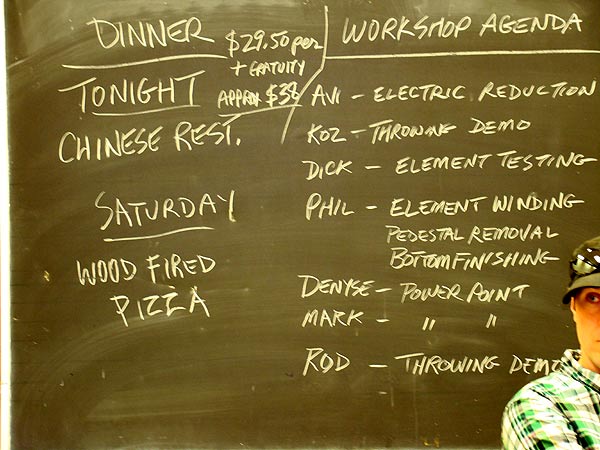 DINNER
$29.50 per
+ GRATUITY
TONIGHT
APPROX $38
CHINESE REST.
SATURDAY
WOOD FIRED
PIZZA
WORKSHOP AGENDA
AVI - ELECTRIC REDUCTION
KOZ - THROWING DEMO
DICK - ELEMENT TESTING
PHIL - ELEMENT WINDING
PEDESTAL REMOVAL
BOTTOM FINISHING
DENYSE - POWER POINT
MARK - " "
ROD - THROWING DEMO